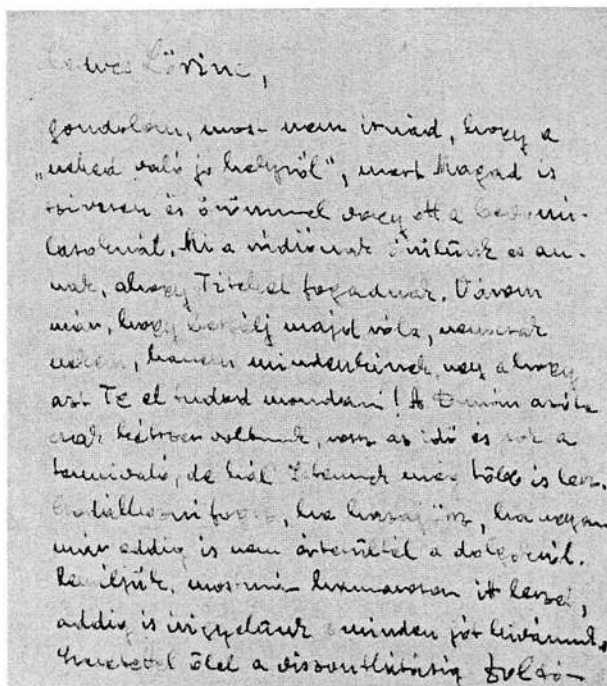 Kedves Lőrinc,
gondolom, most nem írnád, hogy a
„neked való jó helyről", mert Magad is
szívesen és örömmel vagy ott a
Mi a rádiónak örülünk és an-
nak, ahogy Titeket fogadnak. Várom
már, hogy beszélj majd róla, nemcsak
nekem, hanem mindenkinek, úgy ahogy
azt Te el tudod mondani! A Dunán azóta
csak kétszer voltunk, rossz az idő és sok a
tennivaló, de hál' Istennek még több is lesz.
fogsz, ha hazajössz, ha ugyan
már addig is nem értesültél a dolgokról.
Reméljük, most már hamarosan itt leszel,
addig is irigyelünk s minden jót kívánunk.
Szeretettel ölel a viszontlátásig